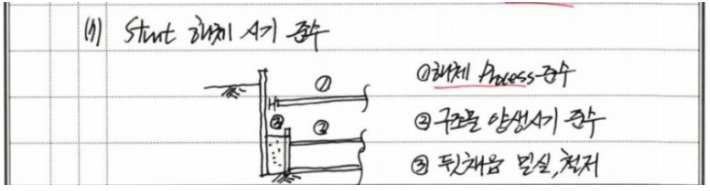 (1) Strut 해체 시기 준수
①
①해체 Process 준수
H
③ ②
②구조물 양생시기 준수
③ 뒷채움 밀실, 철저